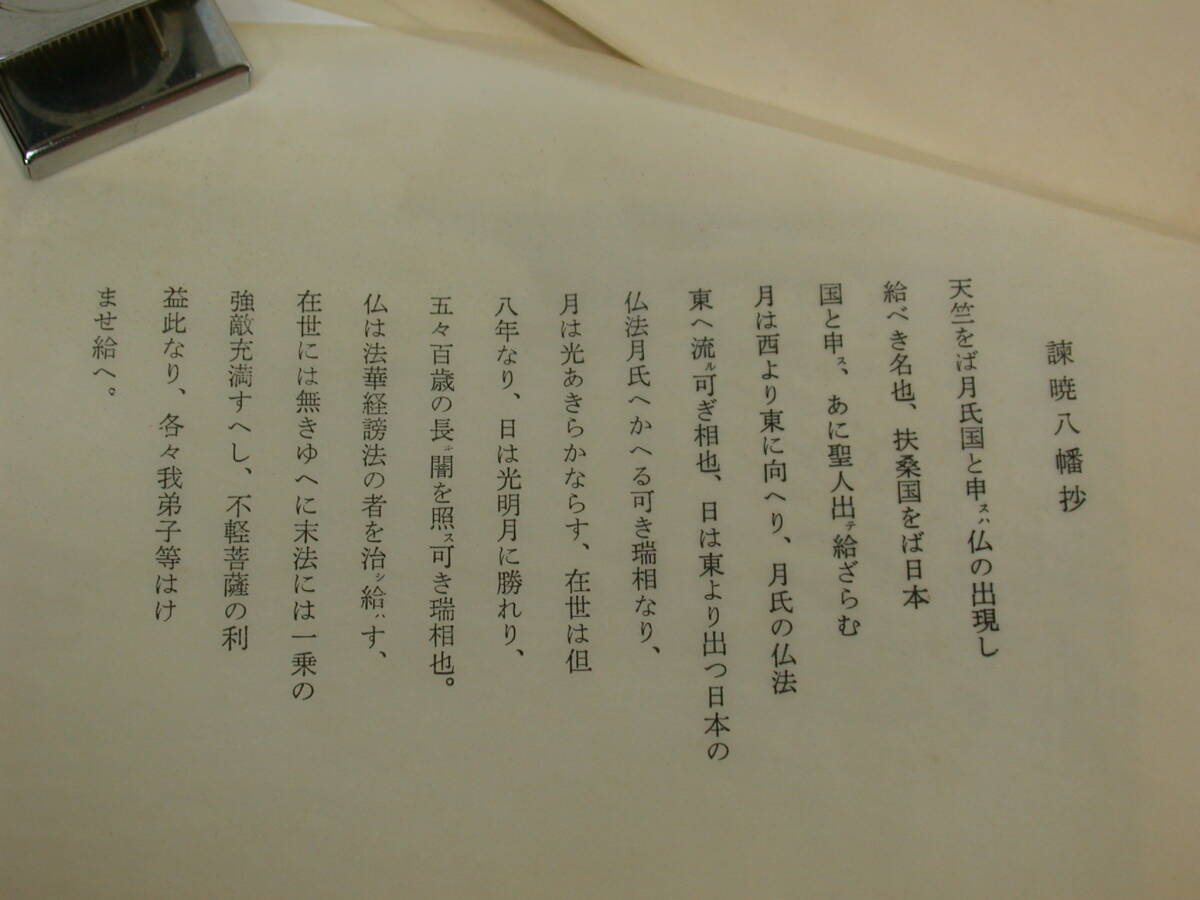 諫暁八幡抄
天竺をば月氏国と申スハ仏の出現し
給べき名也、扶桑国をば日本
国と申ス、あに聖人出テ給ざらむ
月は西より東に向へり、月氏の仏法
東へ流ル可ぎ相也、日は東より出つ日本の
仏法月氏へかへる可き瑞相なり、
月は光あきらかならす、在世は但
八年なり、日は光明月に勝れり、
五々百歳の長キ闇を照ス可き瑞相也。
仏は法華経謗法の者を治シ給ハす、
在世には無きゆへに末法には一乗の
強敵充満すへし、不軽菩薩の利
益此なり、各々我弟子等はけ
ませ給へ。